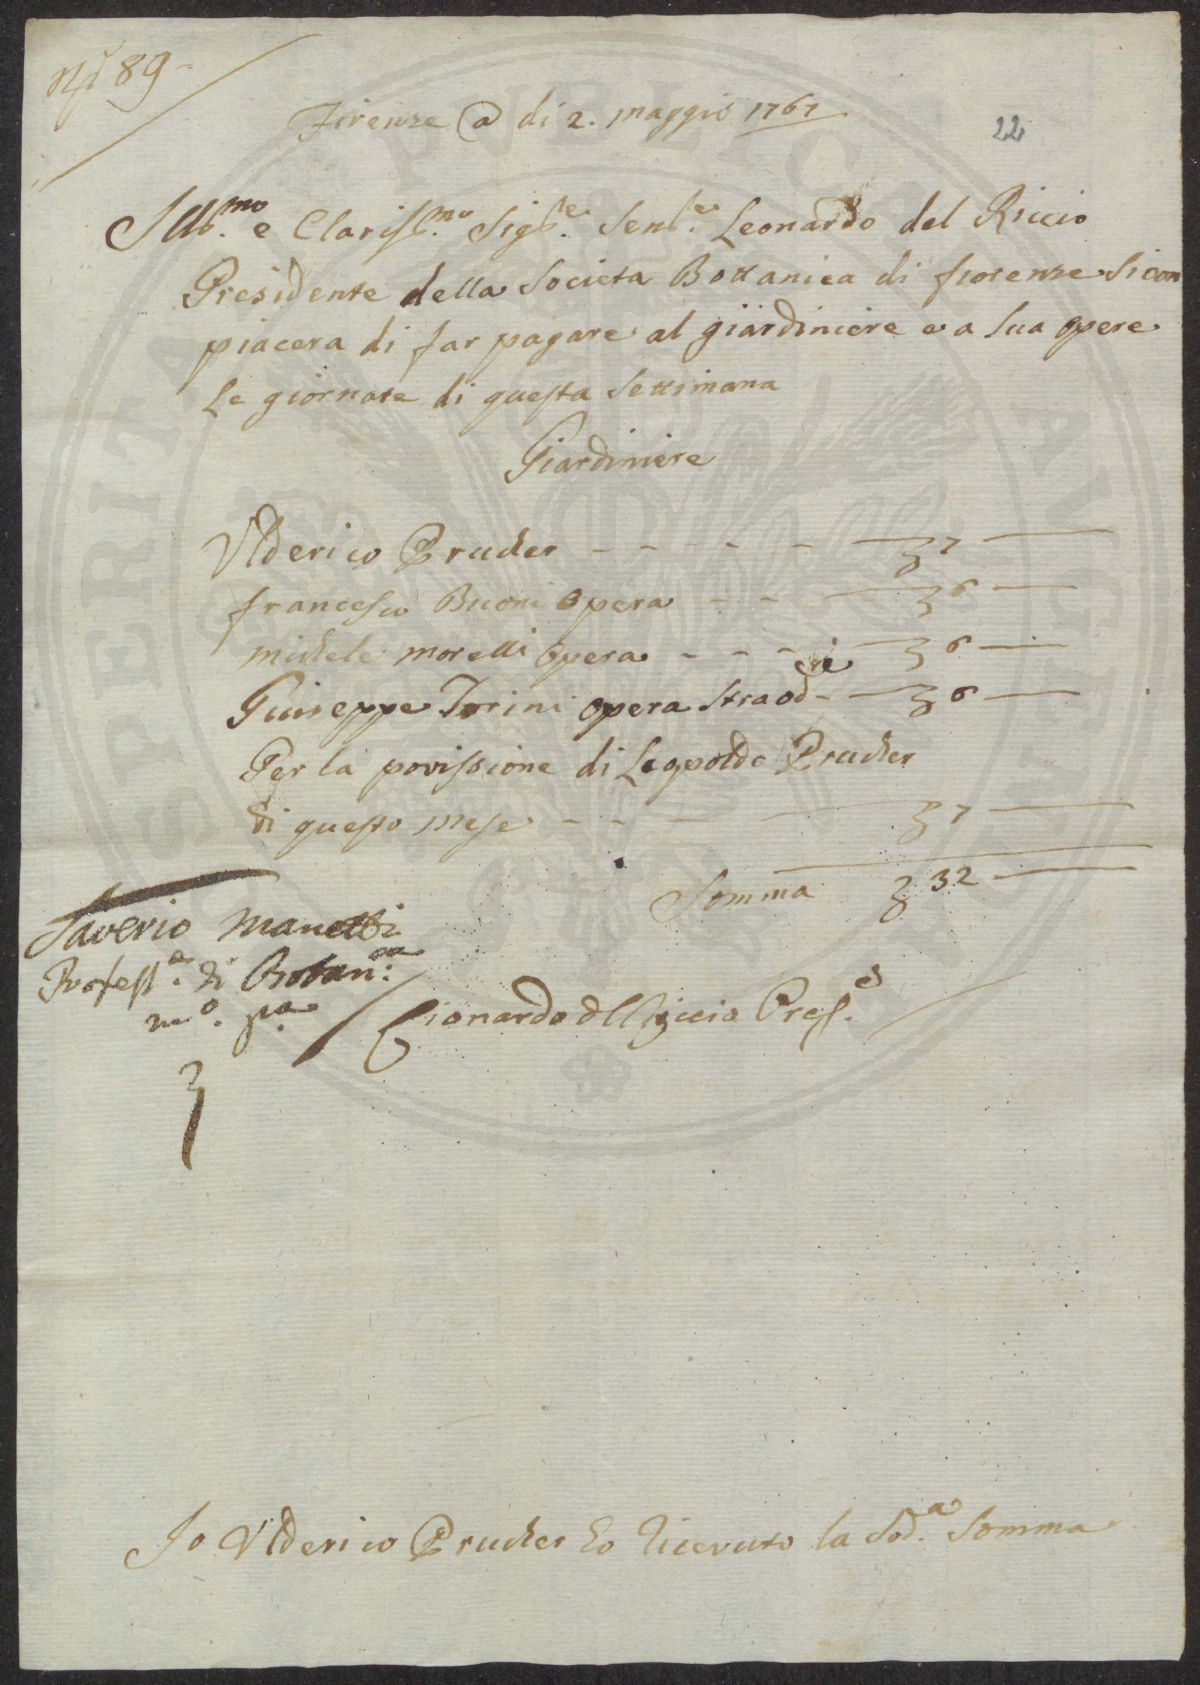 N.º 89
Firenze @ di 2. maggio 1767
22
Ill.mo e Clariss.mo Sig.re Sen.re Leonardo del Riccio
Presidente della Societa Bottanica di fiorenze Si com
piacera di far pagare al giardiniere e a Sua opere
Le giornate di questa Settimana
Giardiniere
Vlderico Prucker - - - - - 7
francesco Buoni opera - - 6
michele morelli opera - - - 6
Giuseppe Torini opera Straod.rie - 6
Per la povissione di Leopoldo Prucker
di questo mese - - - 7
Somma 32
Saverio Manetti
Profess.e di Botan.ca
m.o p.a
Lionardo del Riccio Pres.e
Io Vlderico Prucker Ho Ricevuto la Sod.a Somma